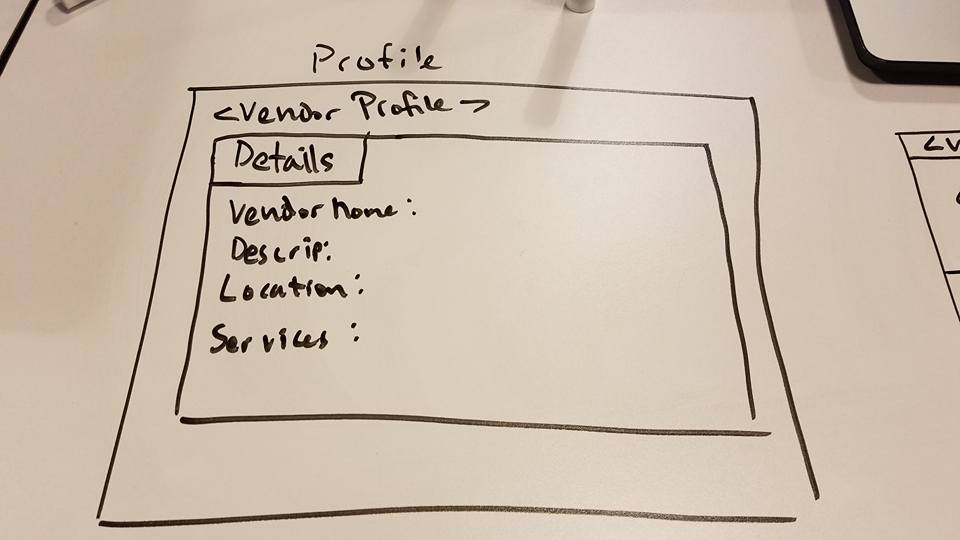 Profile
<Vendor Profile ->
Details
Vendor Name:
Descrip:
Location:
Services :
<V